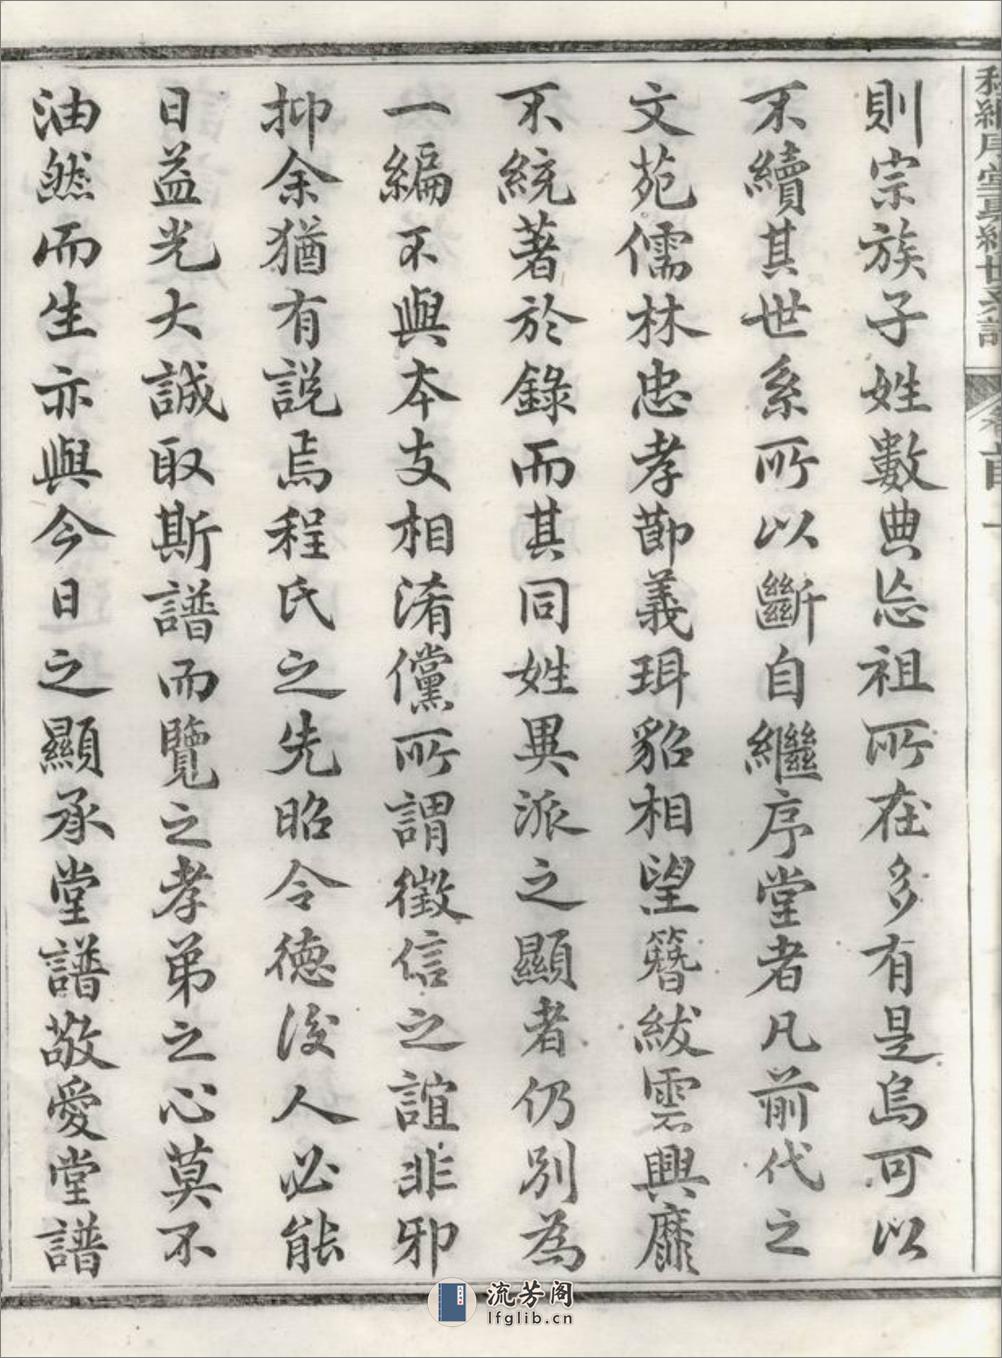 則宗族子姓數典忘祖所在多有是烏可以
不續其世系所以斷自繼序堂者凡前代之
文苑儒林忠孝節義珥貂相望簪紱雲興靡
不統著於錄而其同姓異派之顯者仍別為
一編不與本支相淆儻所謂徵信之誼非邪
抑余猶有説焉程氏之先昭令德後人必能
日益光大誠取斯譜而覽之孝弟之心莫不
油然而生亦與今日之顯承堂譜敬愛堂譜
流芳阁
lfglib.cn